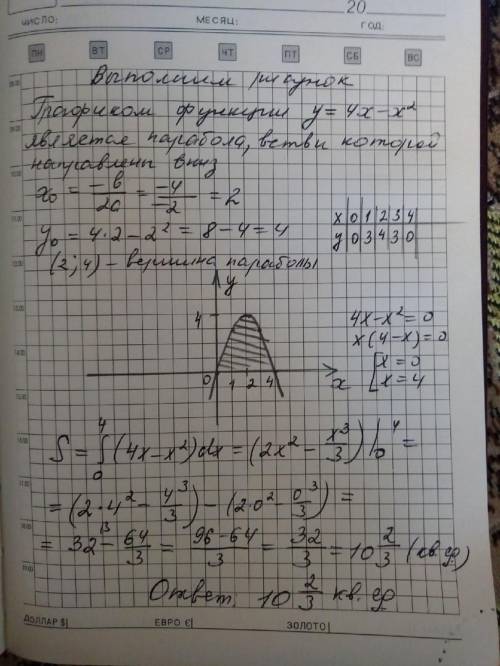 20
ЧИСЛО: МЕСЯЦ: ГОД:
ПН ВТ СР ЧТ ПТ СБ ВС
Выполним рисунок
Графиком функции y = 4x - x²
является парабола, ветви которой
направлены вниз
x₀ = -b/2a = -4/-2 = 2
x 0 1 2 3 4
y₀ = 4·2 - 2² = 8 - 4 = 4
y 0 3 4 3 0
(2; 4) - вершина параболы
y
4
0 1 2 4 x
4x - x² = 0
x(4 - x) = 0
[x = 0
x = 4
S = ∫₀⁴ (4x - x²)dx = (2x² - x³/3)|₀⁴ =
= (2·4² - 4³/3) - (2·0² - 0³/3) =
= 32\³ - 64/3 = 96 - 64/3 = 32/3 = 10 2/3 (кв. ед)
Ответ. 10 2/3 кв. ед
ДОЛЛАР $| ЕВРО €| ЗОЛОТО|